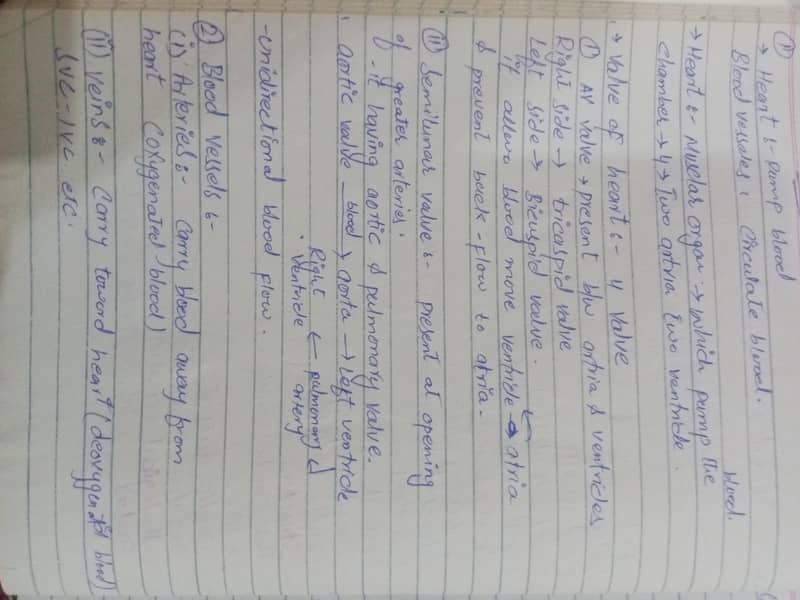 → Heart :- pump blood
Blood vessels : circulate blood.
→ Heart :- Muclar organ → which pump the blood.
chamber → 4 → Two artria two ventricle.
→ Valve of heart :- 4 valve
① AV valve → present b/w artria & ventricles
Right side → tricuspid valve
Left side → Bicuspid valve.
by allow blood move ventricle ← atria
& prevent back-flow to atria.
② Semilunar valve :- present at opening
of greater arteries.
- it having aortic & pulmonary valve.
. Aortic valve blood→ aorta → left ventricle
Right ventricle ← pulmonary artery
- unidirectional blood flow.
② Blood vessels :-
(i) Arteries :- Carry blood away from
heart (oxygenated blood)
(ii) Veins :- Carry toward heart (deoxygenated blood)
SVC - IVC etc.